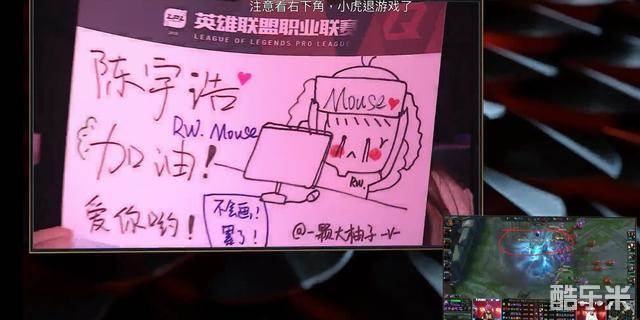 注意看右下角，小虎退游戏了
英雄联盟职业联赛
LEAGUE OF LEGENDS PRO LEAGUE
陈宇浩
Mouse
RW. Mouse
加油!
RW.
爱你哟!
不会画!
累了!
@一颗大柚子
酷乐米